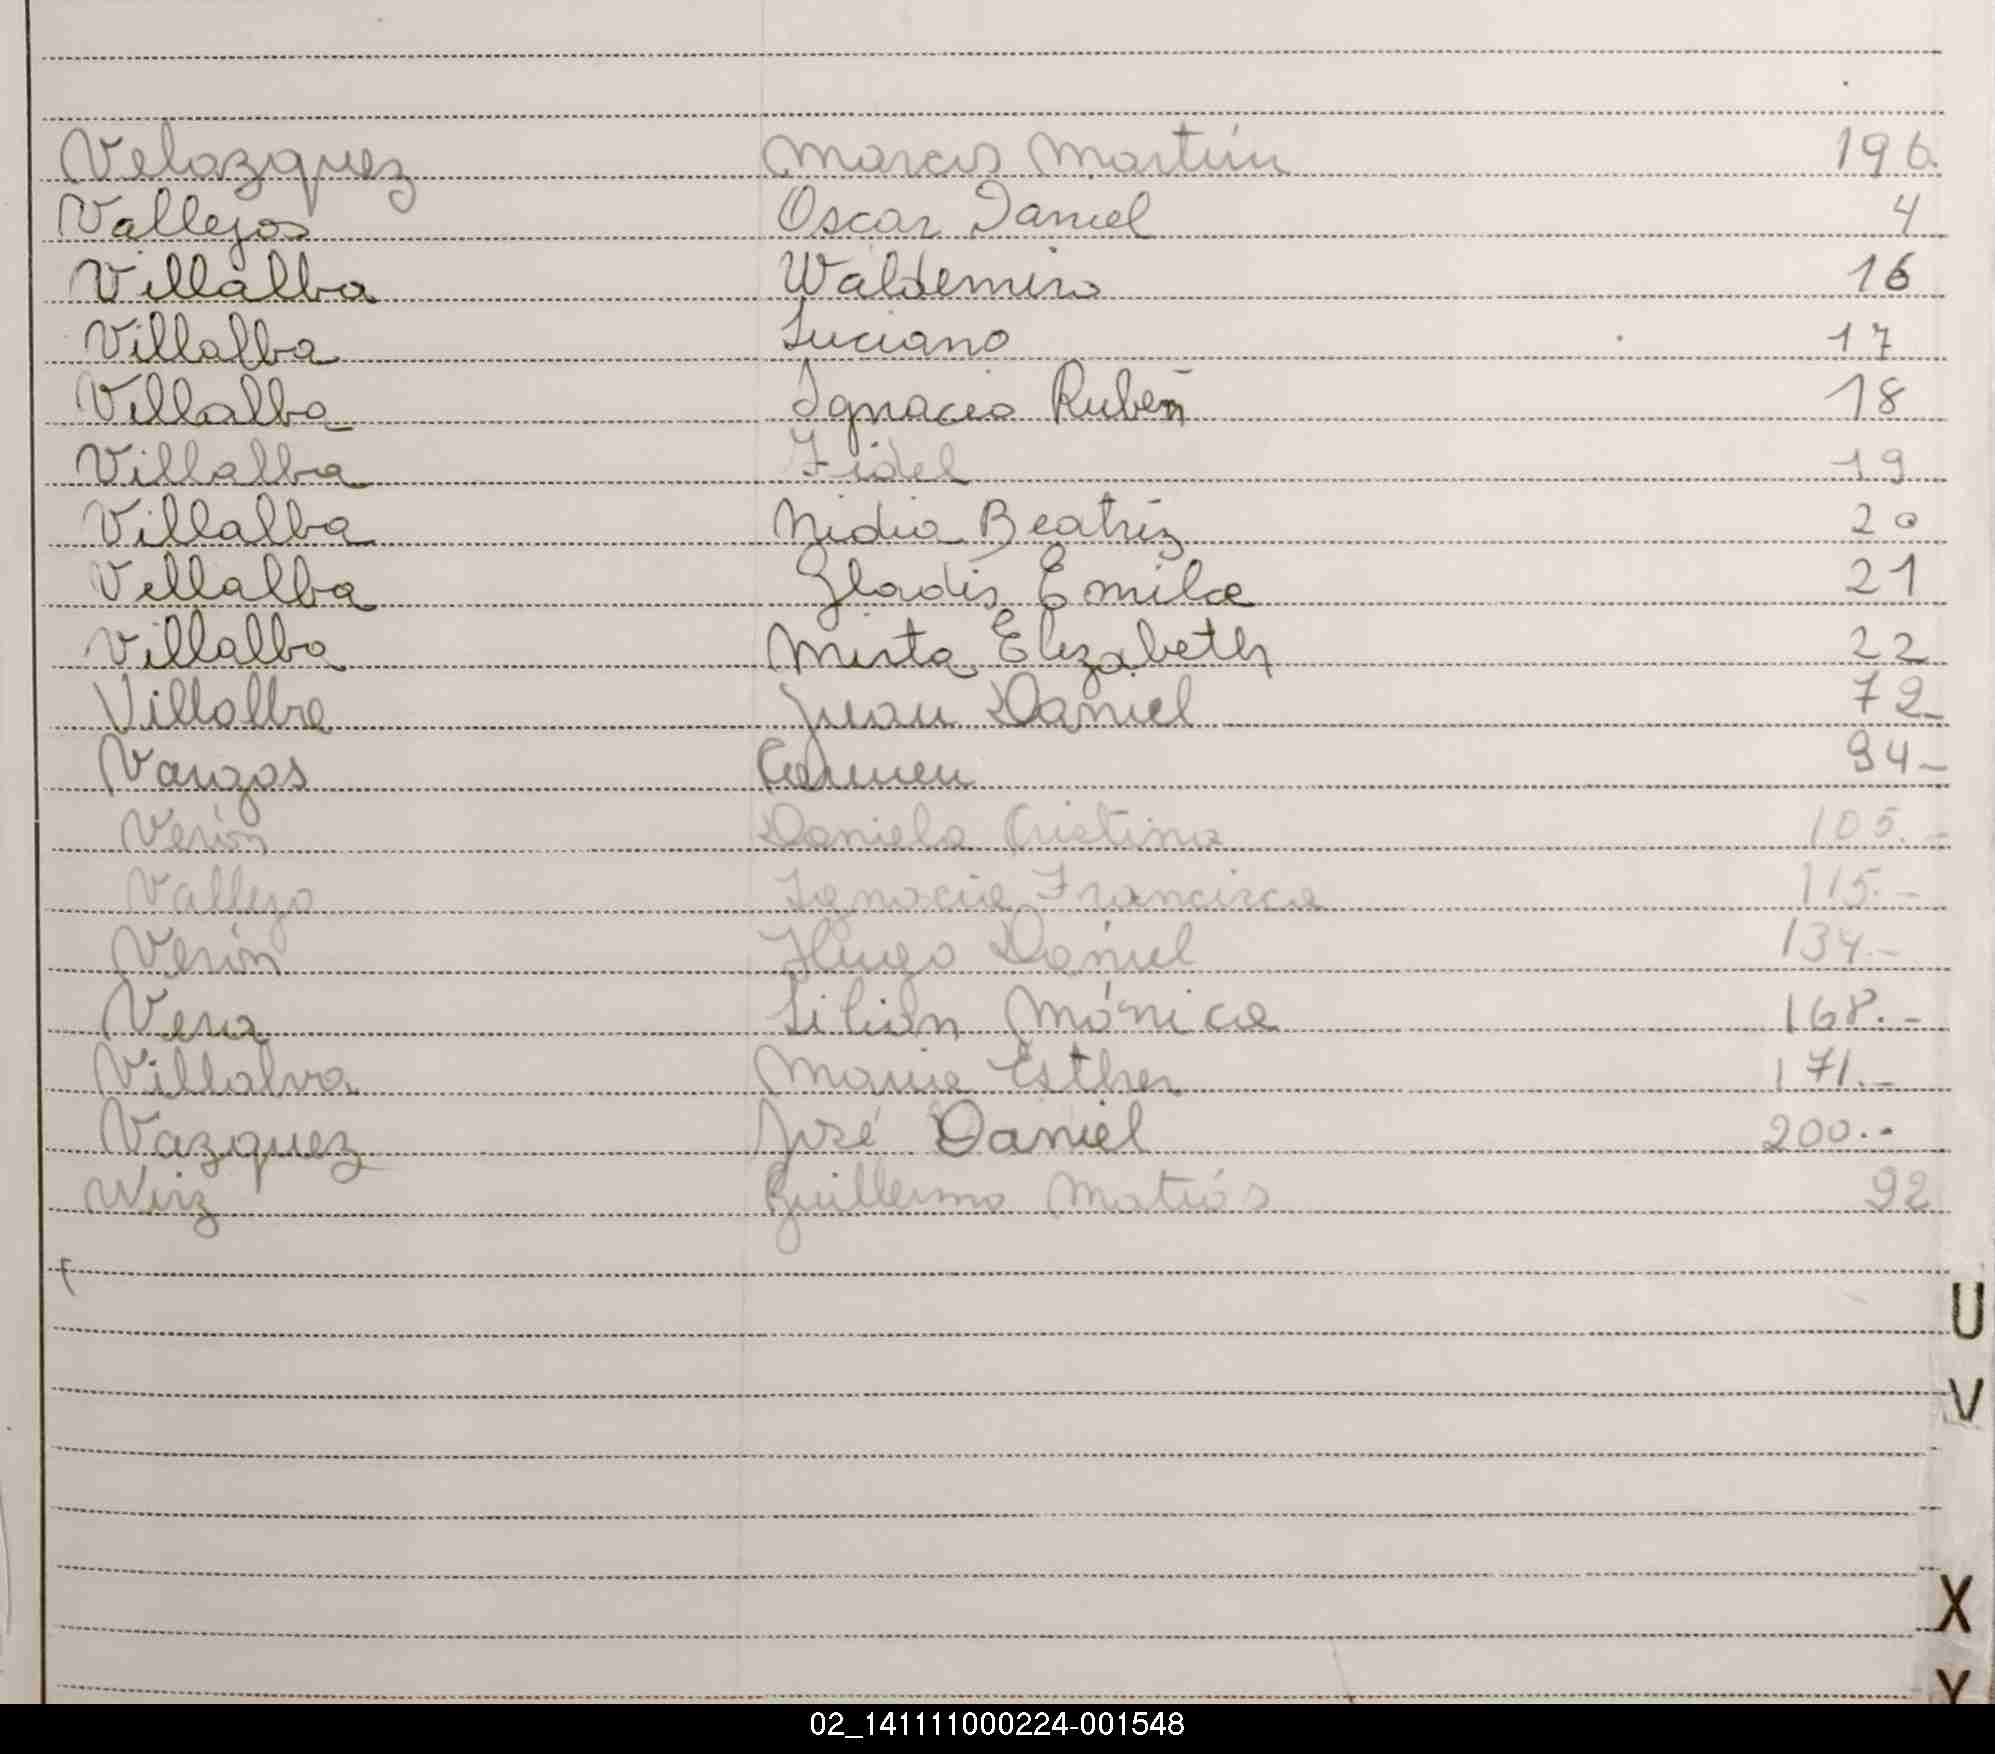 Velazquez Marcos Martín 196.
Vallejos Oscar Daniel 4
Villalba Waldemiro 16
Villalba Luciano 17
Villalba Ignacio Rubén 18
Villalba Fidel 19
Villalba Nidia Beatriz 20
Villalba Gladis Emilce 21
Villalba Mirta Elizabeth 22
Villalba Juan Daniel 72-
Vargas Carmen 94-
Verón Daniela Cristina 105.-
Vallejo Ignacia Francisca 115.-
Verón Hugo Daniel 134.-
Vera Lilian Mónica 168.-
Villalva Maria Esther 171.-
Vazquez José Daniel 200.-
Wirz Guillermo Matiás 92
U
V
X
Y
02_141111000224-001548